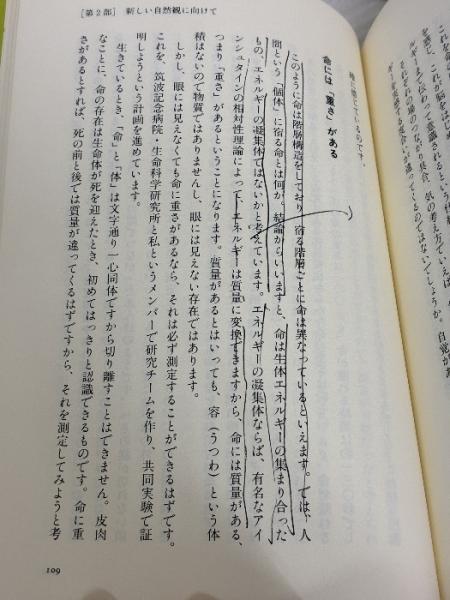 [第2部] 新しい自然観に向けて
命には「重さ」がある
このように命は階層構造をしており、宿る階層ごとに命は異なっているといえます。では、人
間という「個体」に宿る命とは何か。結論からいいますと、命は生体エネルギーの集まり合った
もの、エネルギーの凝集体ではないかと考えています。エネルギーの凝集体ならば、有名なアイ
ンシュタインの相対性理論によって、エネルギーは質量に変換できますから、命には質量がある、
つまり「重さ」があるということになります。質量があるとはいっても、容(うつわ)という体
積はないので物質ではありませんし、眼には見えない存在ではあります。
しかし、眼には見えなくても命に重さがあるなら、それは必ず測定することができるはずです。
これを、筑波記念病院・生命科学研究所と私というメンバーで研究チームを作り、共同実験で証
明しようという計画を進めています。
生きているとき、「命」と「体」は文字通り一心同体ですから切り離すことはできません。皮肉
なことに、命の存在は生命体が死を迎えたとき、初めてはっきりと認識できるものです。命に重
さがあるとすれば、死の前と後では質量が違ってくるはずですから、それを測定してみようと考
109